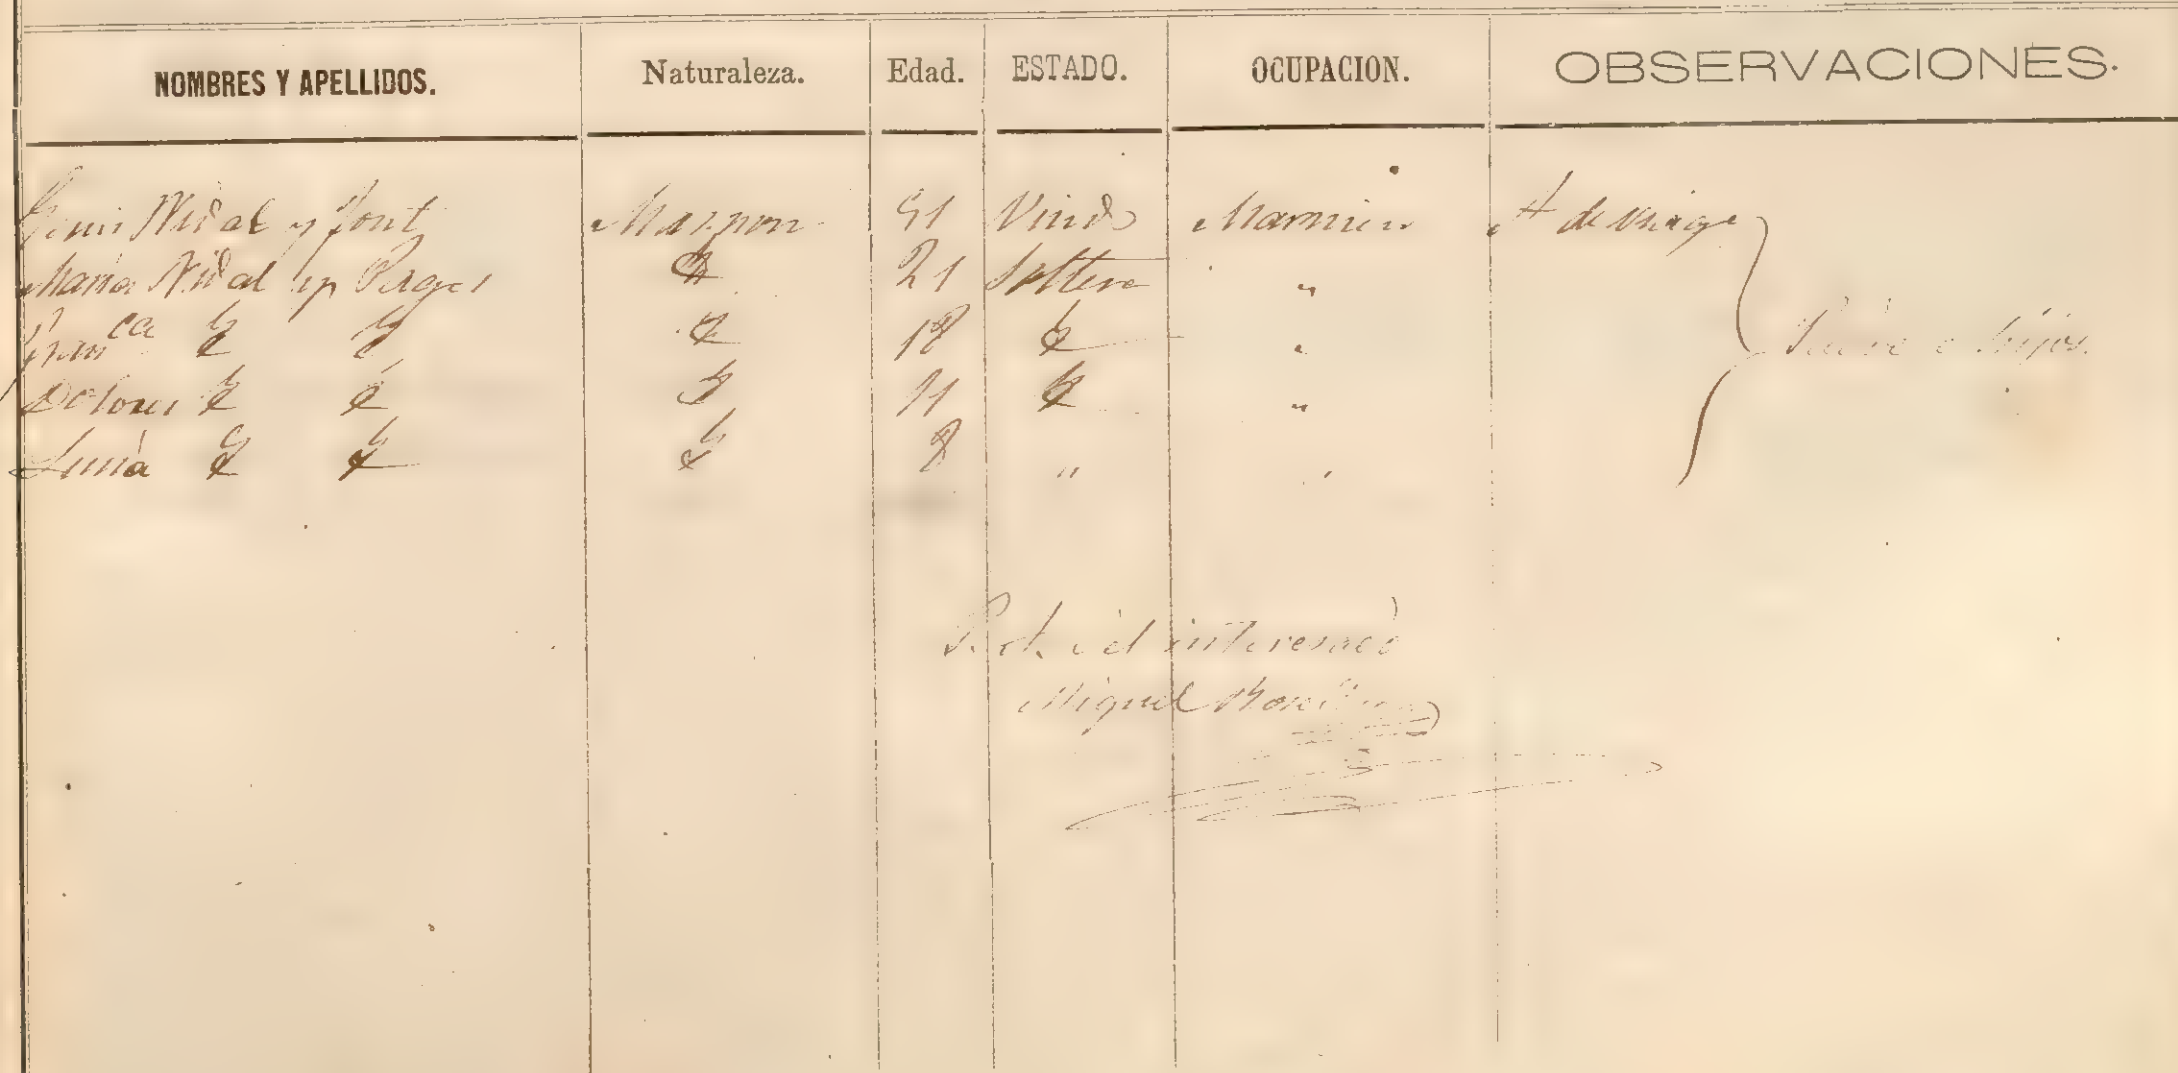 NOMBRES Y APELLIDOS. Naturaleza. Edad. ESTADO. OCUPACION. OBSERVACIONES.
Genis Vidal y Font Masnou 51 Viudo Marinero de viage
Maria Vidal y Pages 21 Soltera "
Fran.ca 18 "
Dolores 11 "
8 " "
Padre e hijos.
P. el interesado
Miguel